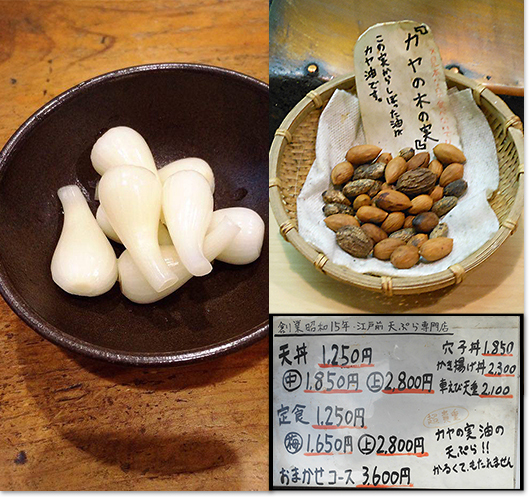 『カヤの木の実』
この実からしぼった油が
カヤ油です。
創業昭和15年・江戸前 天ぷら専門店
天丼 1,250円
中 1,850円 上 2,800円
定食 1,250円
梅 1,650円 上 2,800円
おまかせコース 3,600円
穴子丼 1,850
かき揚げ丼 2,300
車えび天重 2,100
カヤの実油の
天ぷら!!
かるくて、もたれません